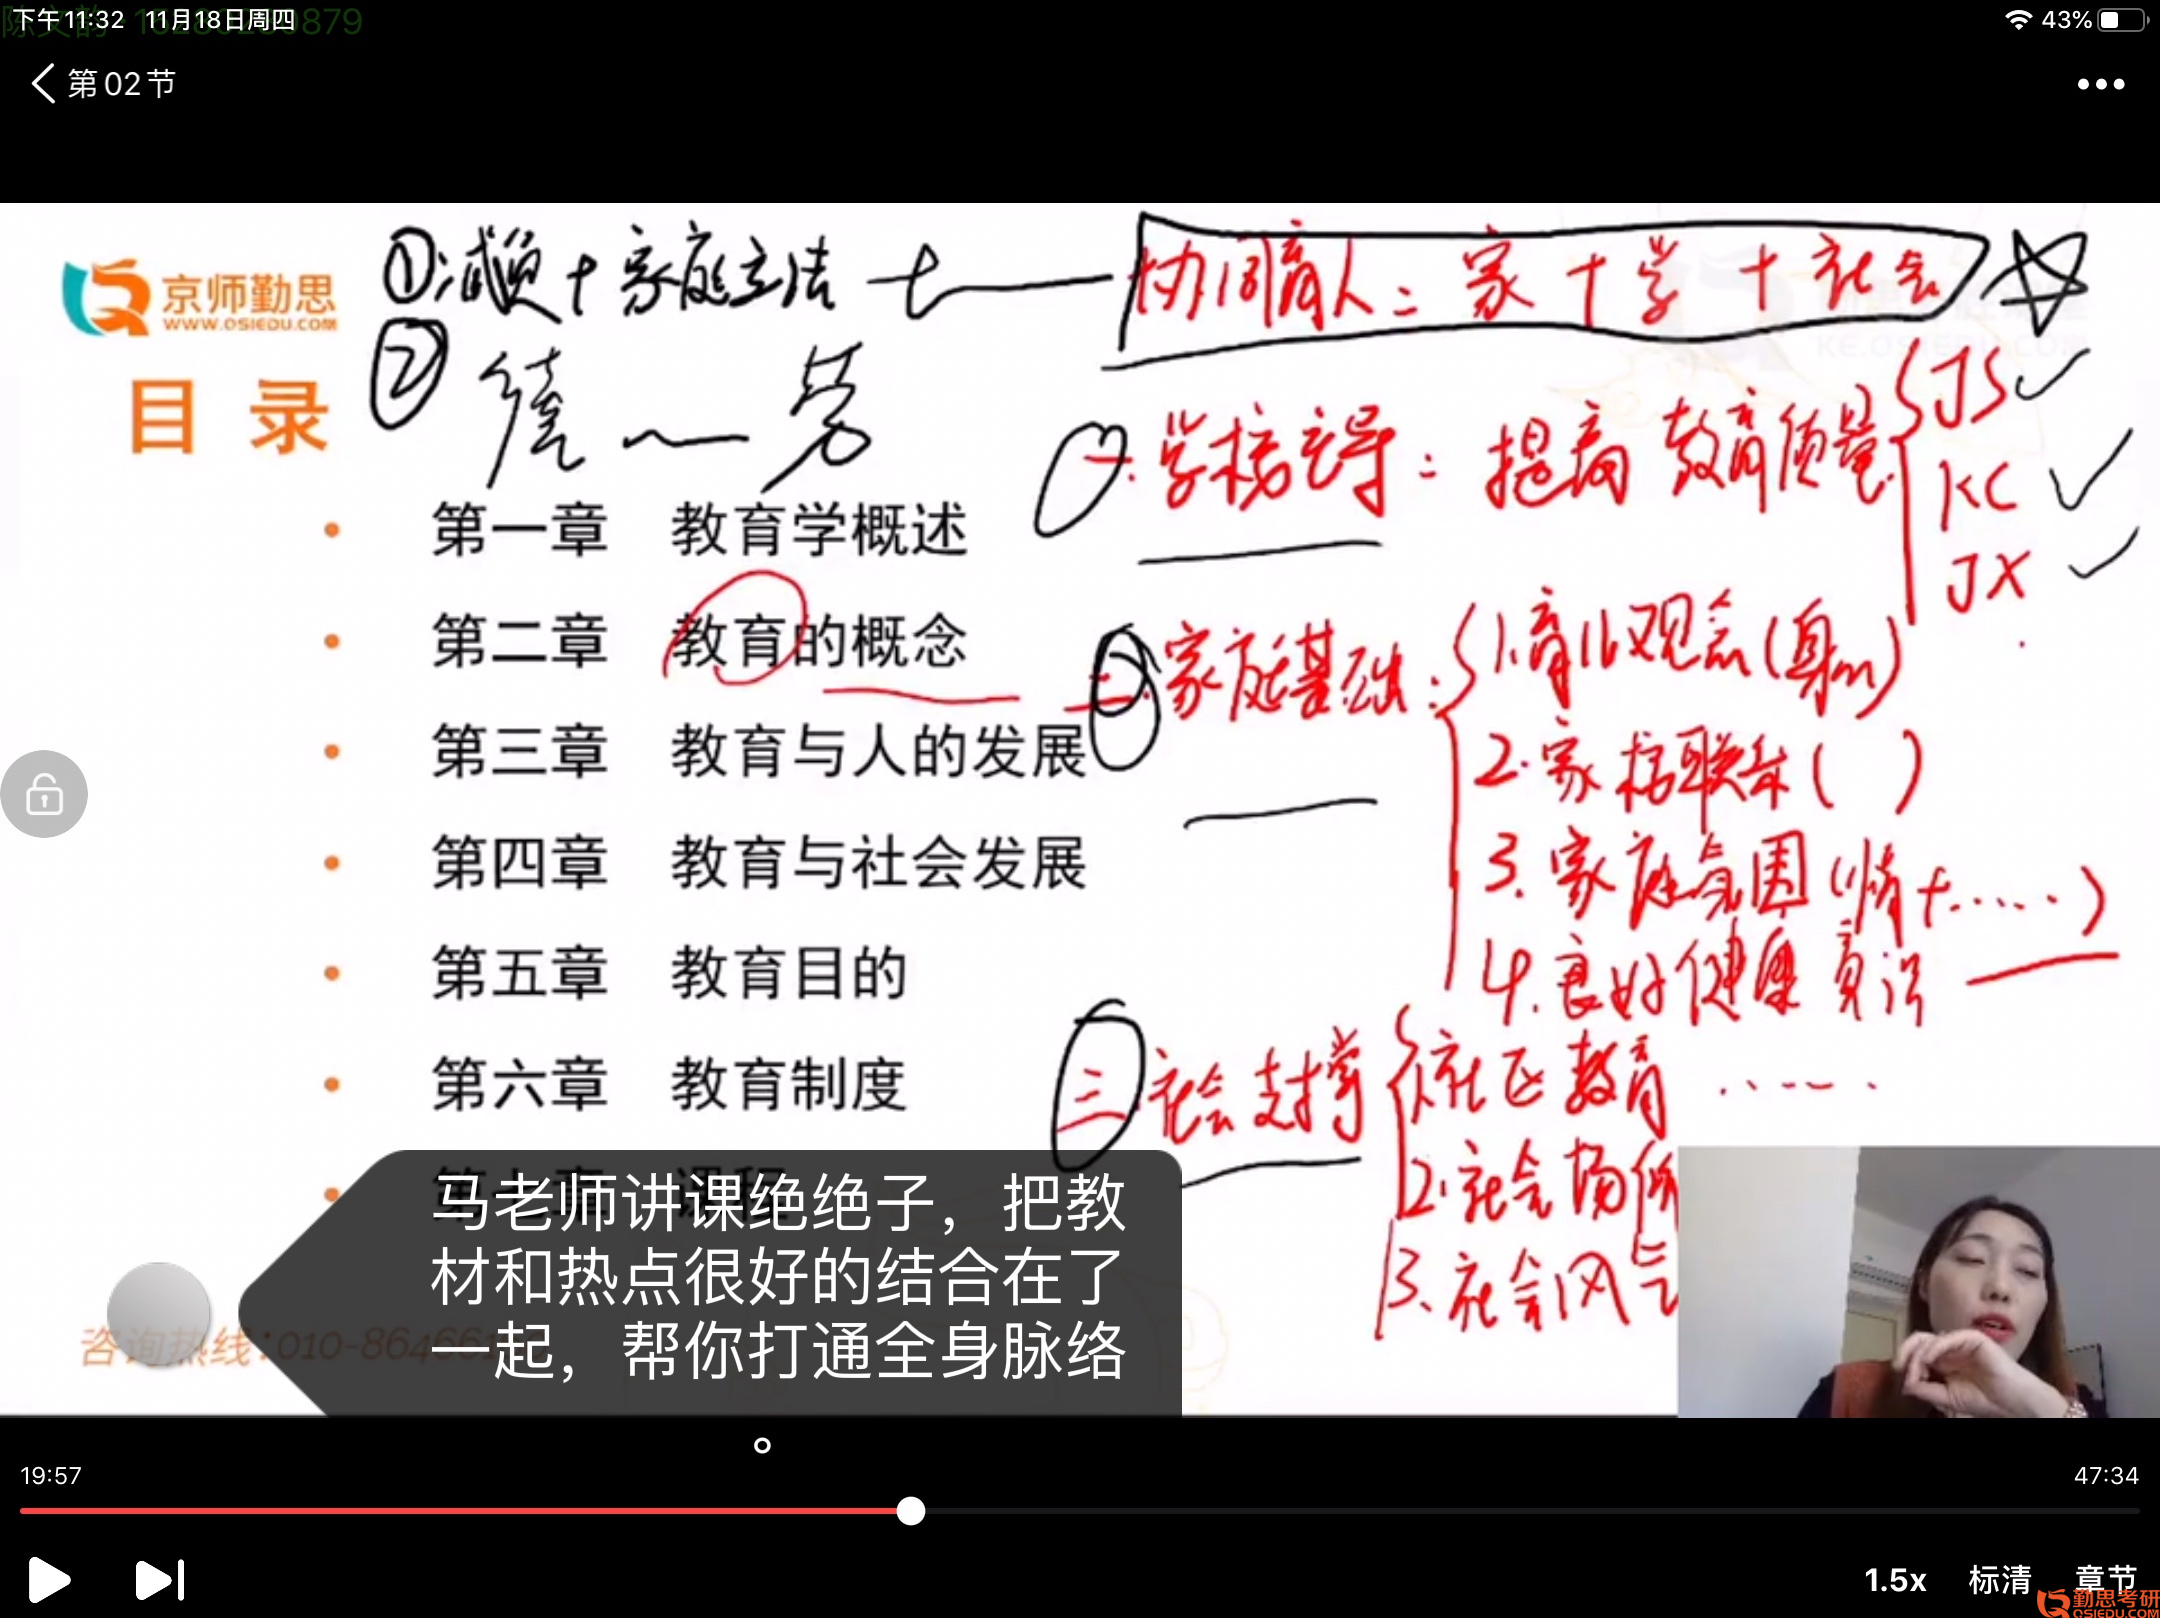 下午11:32 11月18日周四
43%
第02节
京师勤思
WWW.QSIEDU.COM
目录
①减负+家庭立法
协同育人：家+学+社会
② 德～劳
一.学校主导：提高教育质量
JS
KC
JX
第一章 教育学概述
第二章 教育的概念
第三章 教育与人的发展
第四章 教育与社会发展
第五章 教育目的
第六章 教育制度
二.家庭基础：
1.育儿观念(身心)
2.家校联系( )
3.家庭氛围(情+……)
4.良好健康
三.社会支撑
1.社区教育……
2.社会场所
3.社会风气
马老师讲课绝绝子，把教
材和热点很好的结合在了
一起，帮你打通全身脉络
咨询热线：010-86466
19:57
47:34
1.5x 标清 章节
勤思考研
QSIEDU.COM